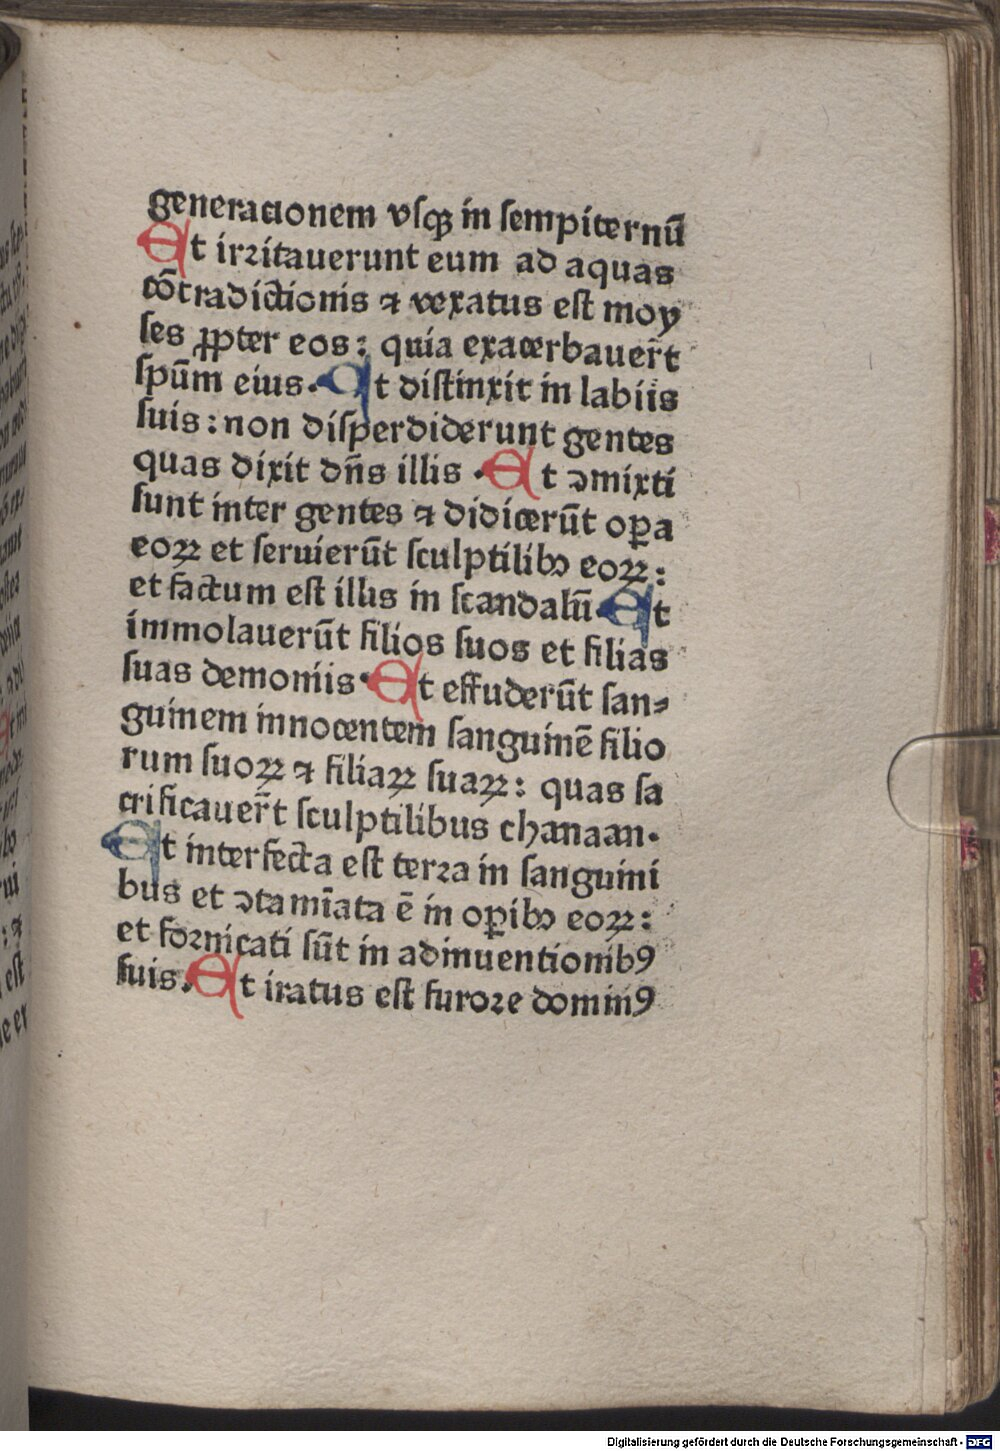 generationem vſqꝫ in ſempiternū
Et irꝛitauerunt eum ad aquas
cōtradictionis ⁊ vexatus eſt moy
ſes ꝓpter eos: quia exacerbauer̄t
ſpūm eius. Et diſtinxit in labiis
ſuis: non diſperdiderunt gentes
quas dixit dn̄s illis. Et ↄmixti
ſunt inter gentes ⁊ didicerūt oꝑa
eoꝝ et ſeruierūt ſculptilibꝰ eoꝝ:
et factum eſt illis in ſcandalū. Et
immolauerūt filios ſuos et filias
ſuas demoniis. Et effuderūt ſan⸗
guinem innocentem ſanguinē filio
rum ſuoꝝ ⁊ filiaꝝ ſuaꝝ: quas ſa
crificauer̄t ſculptilibus chanaan.
Et interfecta eſt terꝛa in ſanguini
bus et ↄtamīata ē in oꝑibꝰ eoꝝ:
et foꝛnicati ſūt in adinuentionibꝰ
ſuis. Et iratus eſt furoꝛe dominꝰ
Digitalisierung gefördert durch die Deutsche Forschungsgemeinschaft - DFG